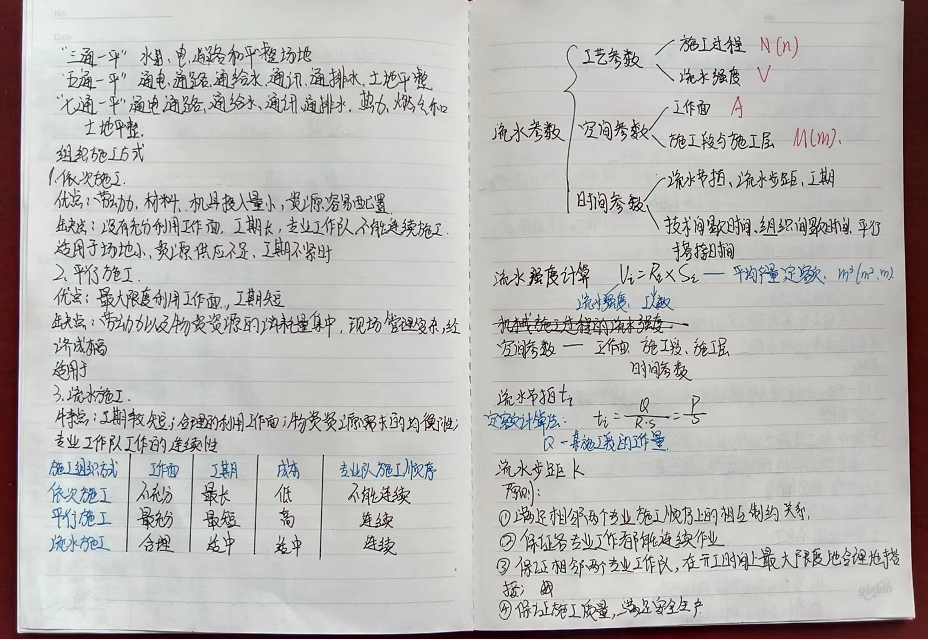 "三通一平" 水通、电、道路和平整场地
"五通一平" 通电,通路,通给水,通讯,通排水,土地平整
"七通一平" 通电通路、通给水、通讯、通排水、热力、燃气和
土地平整.
组织施工方式
1.依次施工.
优点:劳动力,材料、机具投入量小,资源容易配置
缺点:没有充分利用工作面,工期长,专业工作队不能连续施工.
适用于场地小,资源供应不足,工期不紧时
2.平行施工.
优点:最大限度利用工作面,工期短
缺点:劳动力以及物资资源的消耗量集中,现场管理复杂,经
济成本高
适用于
3.流水施工.
特点:工期较短;合理的利用工作面;物资资源需求的均衡性;
专业工作队工作的连续性
施工组织方式 工作面 工期 成本 专业队施工顺序
依次施工 不充分 最长 低 不能连续
平行施工 最充分 最短 高 连续
流水施工 合理 适中 适中 连续
流水参数
工艺参数
施工过程 N(n)
流水强度 V
空间参数
工作面 A
施工段与施工层 M(m).
时间参数
流水节拍、流水步距、工期
技术间歇时间、组织间歇时间,平行
搭接时间
流水强度计算 Vi=Ri×Si — 平均产量定额 m³(m²,m)
流水强度 人数
机械施工过程的流水强度
空间参数 — 工作面 施工段、施工层
时间参数
流水节拍ti
定额计算法: ti=Q/R·S=P/
Q-某施工段的工作量.
流水步距 K
原则:
①满足相邻两个专业施工顺序上的相互制约关系,
② 保证各专业工作都能连续作业
③ 保证相邻两个专业工作队,在开工时间上最大限度地合理地搭
接;
④ 保证施工质量,满足安全生产